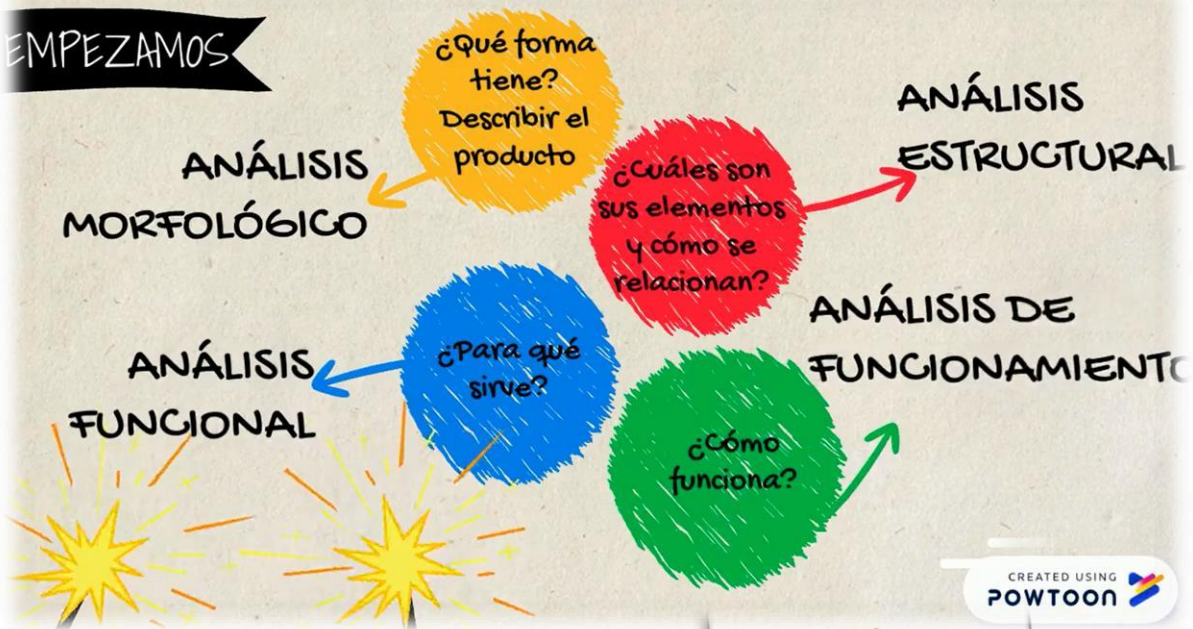 EMPEZAMOS
¿Qué forma
tiene?
Describir el
producto
ANÁLISIS
MORFOLÓGICO
¿Cuáles son
sus elementos
y cómo se
relacionan?
ANÁLISIS
ESTRUCTURAL
¿Para qué
sirve?
ANÁLISIS
FUNCIONAL
¿Cómo
funciona?
ANÁLISIS DE
FUNCIONAMIENTO
CREATED USING
POWTOON